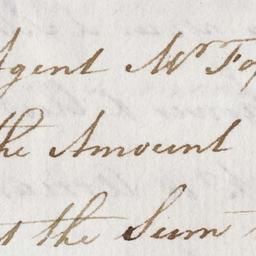 Agent Mr Fo
the Amount
the Sum